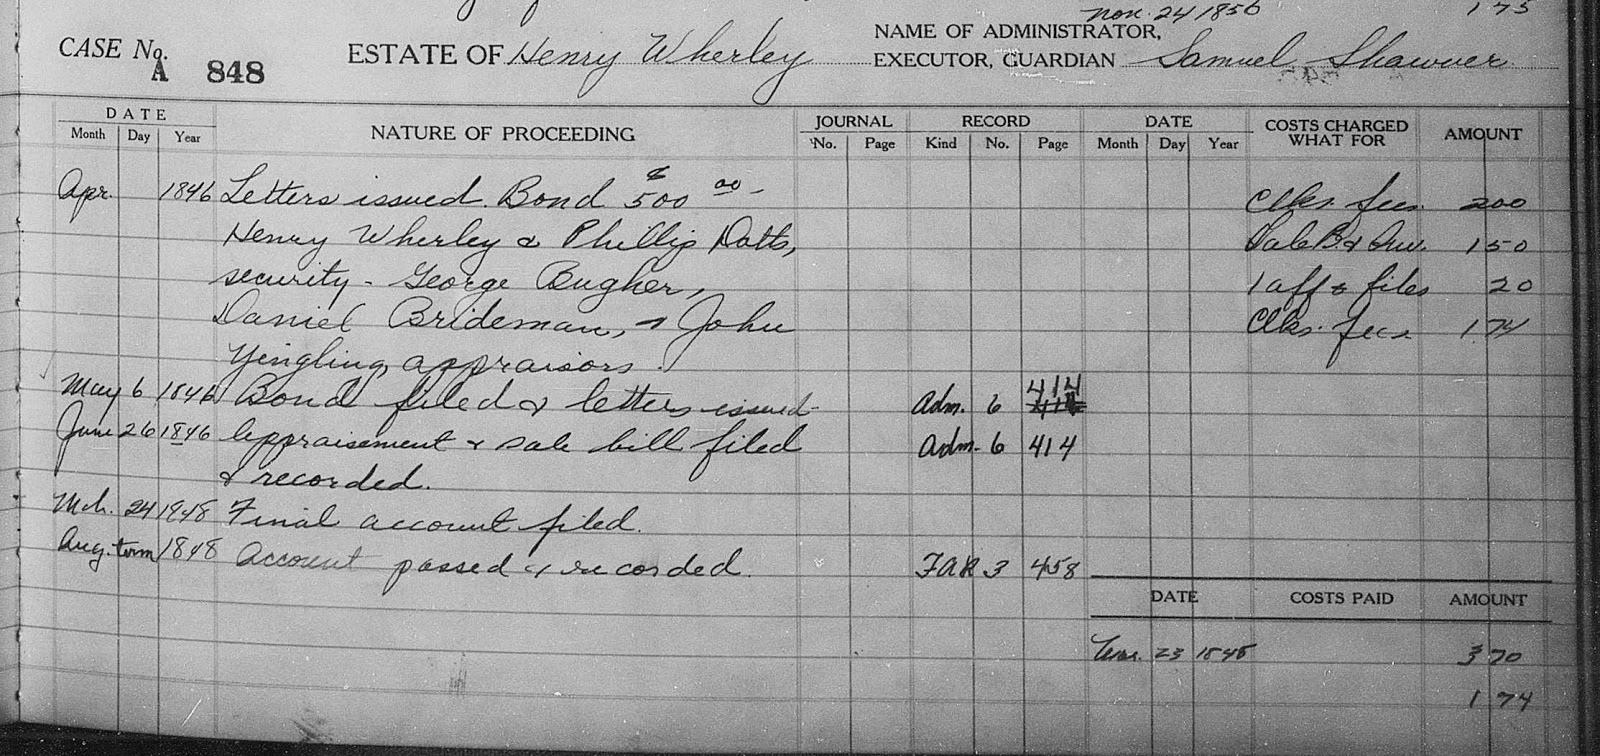 Nov. 24 1856 1 75
CASE No. A 848 ESTATE OF Henry Wherley NAME OF ADMINISTRATOR, EXECUTOR, GUARDIAN Samuel Shawver
DATE NATURE OF PROCEEDING JOURNAL RECORD DATE COSTS CHARGED WHAT FOR AMOUNT
Month Day Year No. Page Kind No. Page Month Day Year
Apr. 1846 Letters issued. Bond $500 00 - Clks. fees. 2 00
Henry Wherley & Phillip Datts, Sale B. & Inv. 1 50
security - George Bugher, 1 aff & files 20
Daniel Brideman, & John Clks. fees 1 74
Yingling, appraisors.
May 6 1846 Bond filed & letters issued - Adm. 6 414
June 26 1846 Appraisement & sale bill filed Adm. 6 414
& recorded.
Mch. 24 1948 Final account filed.
Aug. term 1848 Account passed & recorded. FAR 3 458
DATE COSTS PAID AMOUNT
23 1848 3 70
1 74